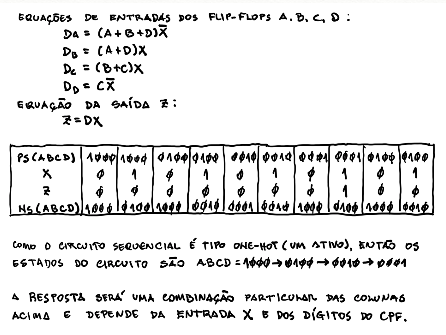 EQUAÇÕES DE ENTRADAS DOS FLIP-FLOPS A, B, C, D :
DA = (A+B+D)X̄
DB = (A+D)X
DC = (B+C)X
DD = CX̄
EQUAÇÃO DA SAÍDA Z :
Z = DX
PS(ABCD) 1000 1000 0100 0100 0010 0010 0001 0001 0100 0100
X 0 1 0 1 0 1 0 1 0 1
Z 0 0 0 0 0 0 0 1 0 0
NS(ABCD) 1000 0100 1000 0010 0001 0010 1000 0100 1000 0010
COMO O CIRCUITO SEQUENCIAL É TIPO ONE-HOT (UM ATIVO), ENTÃO OS
ESTADOS DO CIRCUITO SÃO ABCD = 1000→0100→0010→0001
A RESPOSTA SERÁ UMA COMBINAÇÃO PARTICULAR DAS COLUNAS
ACIMA E DEPENDE DA ENTRADA X E DOS DÍGITOS DO CPF.